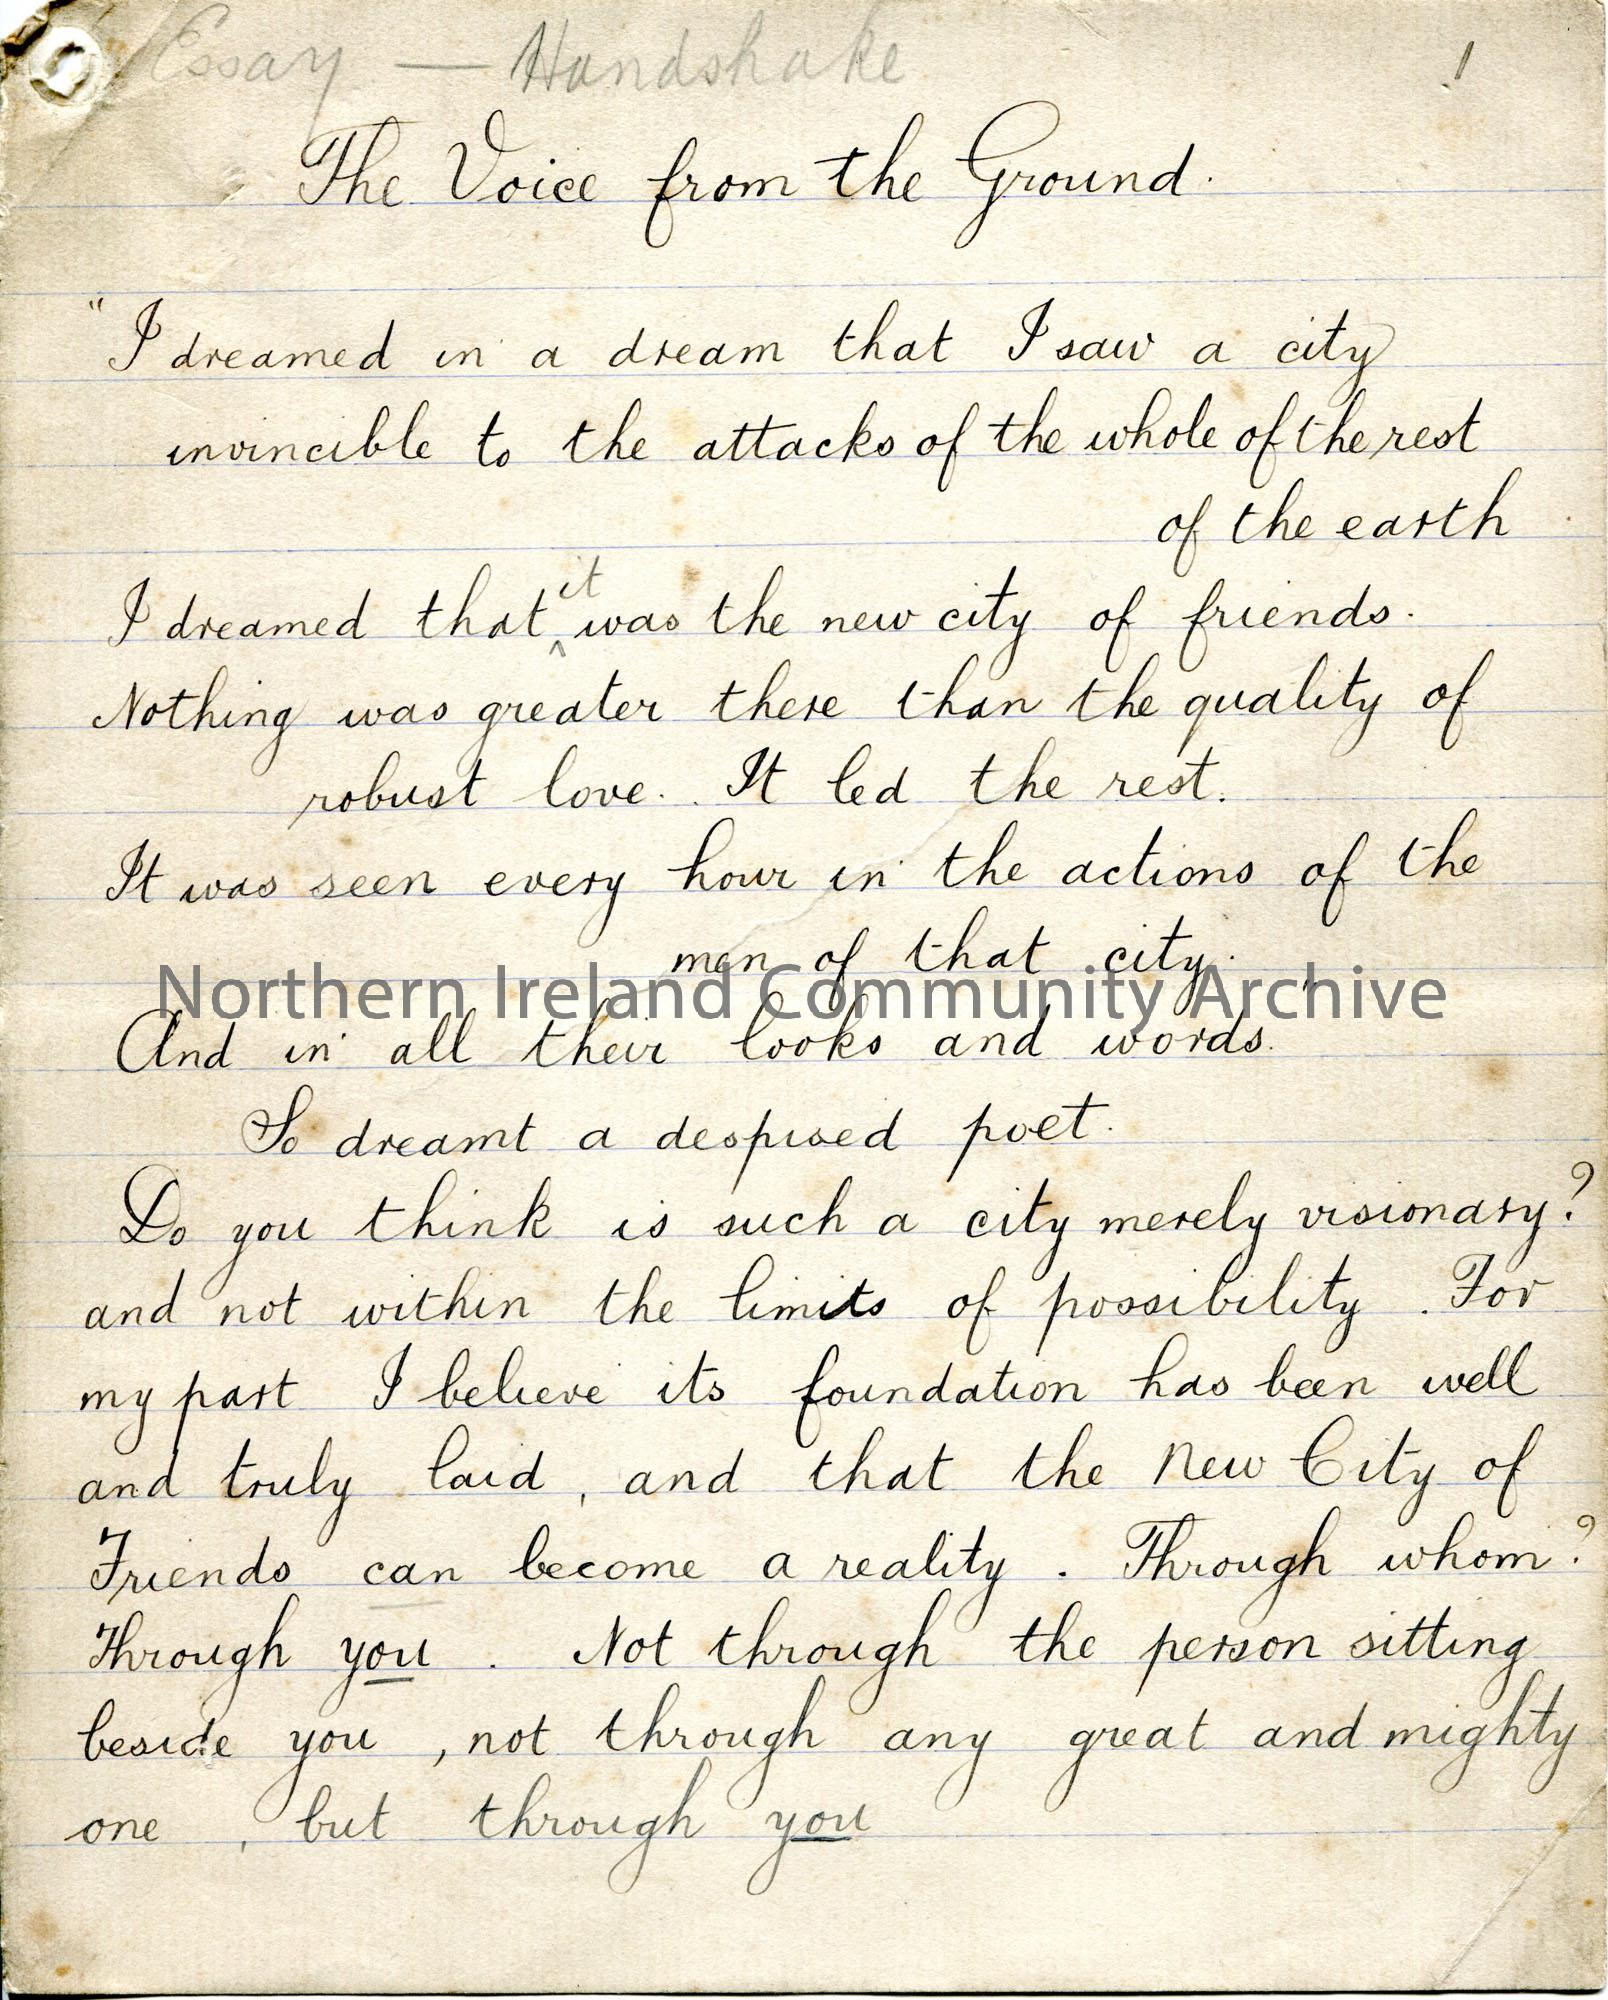 Essay — Handshake
1
The Voice from the Ground.
"I dreamed in a dream that I saw a city
invincible to the attacks of the whole of the rest
of the earth
I dreamed that it was the new city of friends.
Nothing was greater there than the quality of
robust love. It led the rest.
It was seen every hour in the actions of the
men of that city.
And in all their looks and words.
So dreamt a despised poet.
Do you think is such a city merely visionary?
and not within the limits of possibility. For
my part I believe its foundation has been well
and truly laid, and that the New City of
Friends can become a reality. Through whom?
Through you. Not through the person sitting
beside you, not through any great and mighty
one, but through you
Northern Ireland Community Archive